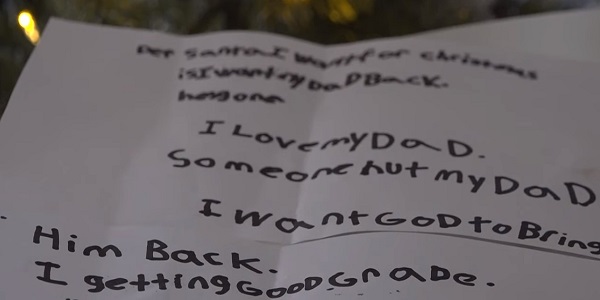 Der Santa I want for christmas
is I want my DaD Back.
he gone
I Love my DaD.
Someone hut my DaD
I want GOD to Bring
Him Back.
I getting GOOD GraDe.